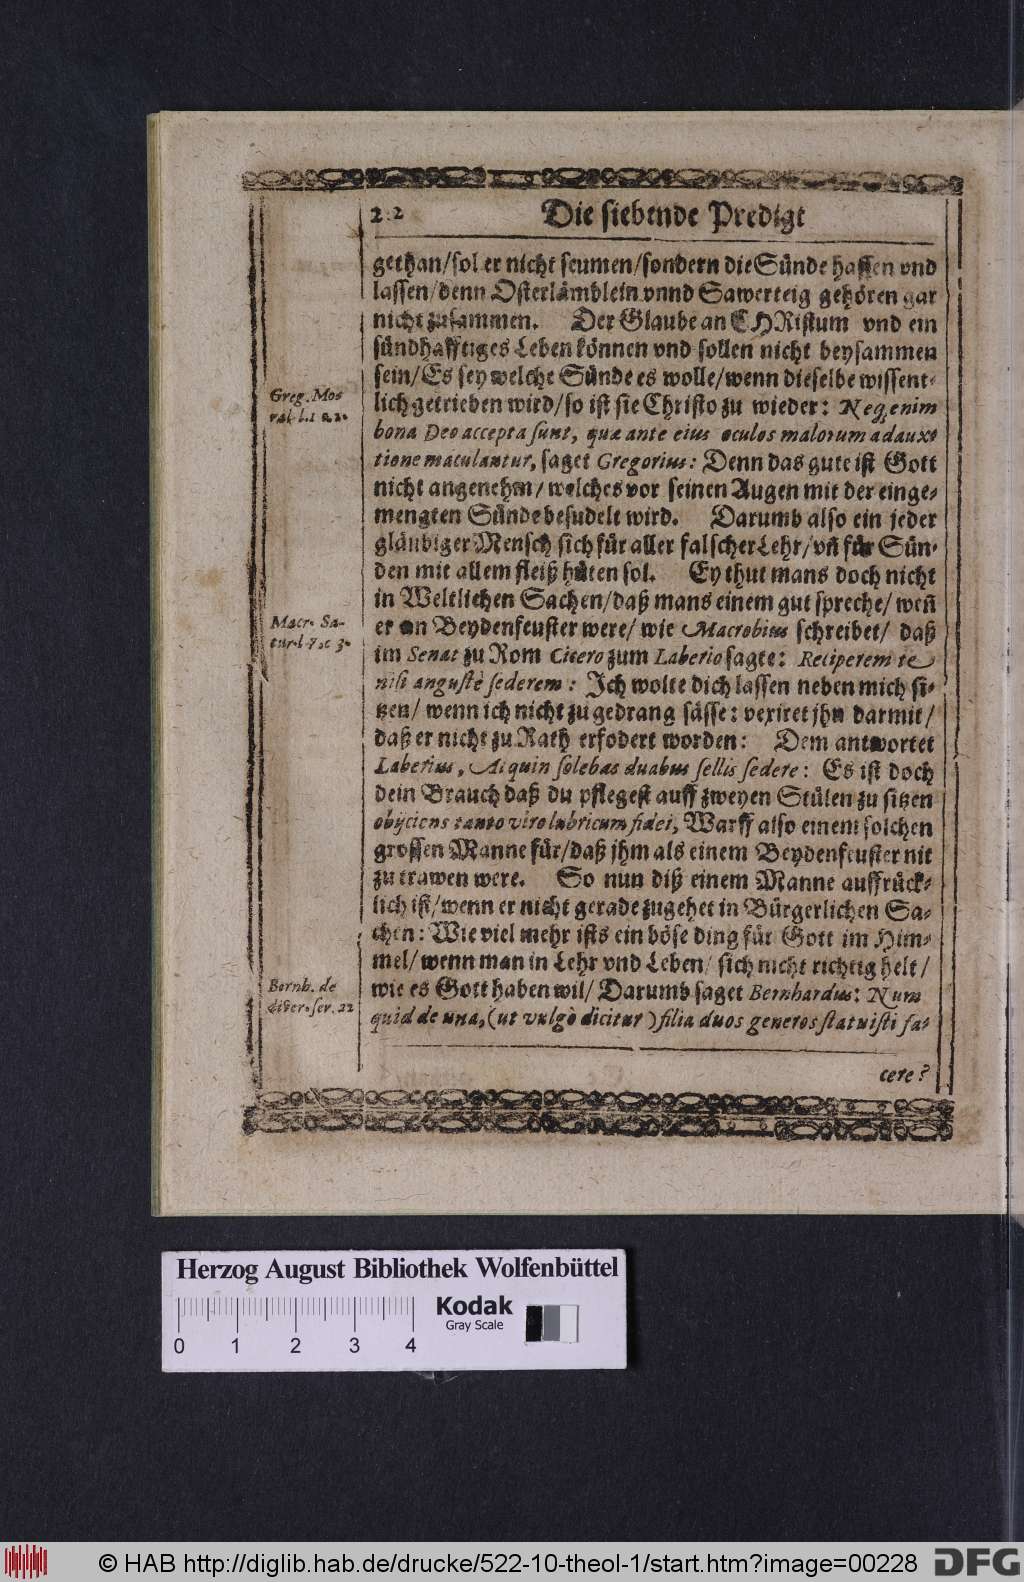 2.2 Die siebende Predigt
gethan/sol er nicht seumen/sondern die Sünde hassen vnd
lassen/denn Osterlämblein vnnd Sawerteig gehören gar
nicht zusammen. Der Glaube an CHRistum vnd ein
sündhafftiges Leben können vnd sollen nicht beysammen
sein/Es sey welche Sünde es wolle/wenn dieselbe wissent-
lich getrieben wird/so ist sie Christo zu wieder: Neq, enim
bona Deo accepta sunt, quæ ante eius oculos malorum adauxo
tione maculantur, saget Gregorius: Denn das gute ist Gott
nicht angenehm/welches vor seinen Augen mit der einge-
mengten Sünde besudelt wird. Darumb also ein jeder
gläubiger Mensch sich für aller falscher Lehr/vñ für Sün-
den mit allem fleiß hüten sol. Ey thut mans doch nicht
in Weltlichen Sachen/daß mans einem gut spreche/ weñ
er an Beydenfeuster were/ wie Macrobius schreibet/ daß
im Senat zu Rom Cicero zum Laberio sagte: Reciperem te
nisi angustè sederem: Ich wolte dich lassen neben mich si-
tzen/ wenn ich nicht zu gedrang sässe: vexiret jhn darmit/
daß er nicht zu Rath erfodert worden: Dem antwortet
Laberius, Atquin solebas duabus sellis sedere: Es ist doch
dein Brauch daß du pflegest auff zweyen Stülen zu sitzen
obijciens tanto viro lubricum fidei, Warff also einem solchen
grossen Manne für/daß jhm als einem Beydenfeuster nit
zu trawen were. So nun diß einem Manne auffrück-
lich ist/wenn er nicht gerade zugehet in Bürgerlichen Sa-
chen: Wie viel mehr ists ein böse ding für Gott im Him-
mel/ wenn man in Lehr vnd Leben/ sich nicht richtig helt/
wie es Gott haben wil/ Darumb saget Bernhardus: Num
quid de una, (ut vulgò dicitur) filia duos generos statuisti fa-
cere?
Greg. Mos
ral. l.1 c.2.
Macr. Sa-
tur. l. 7. c 3.
Bernh. de
diver. ser. 22
Herzog August Bibliothek Wolfenbüttel
Kodak
Gray Scale
0 1 2 3 4
© HAB http://diglib.hab.de/drucke/522-10-theol-1/start.htm?image=00228
DFG